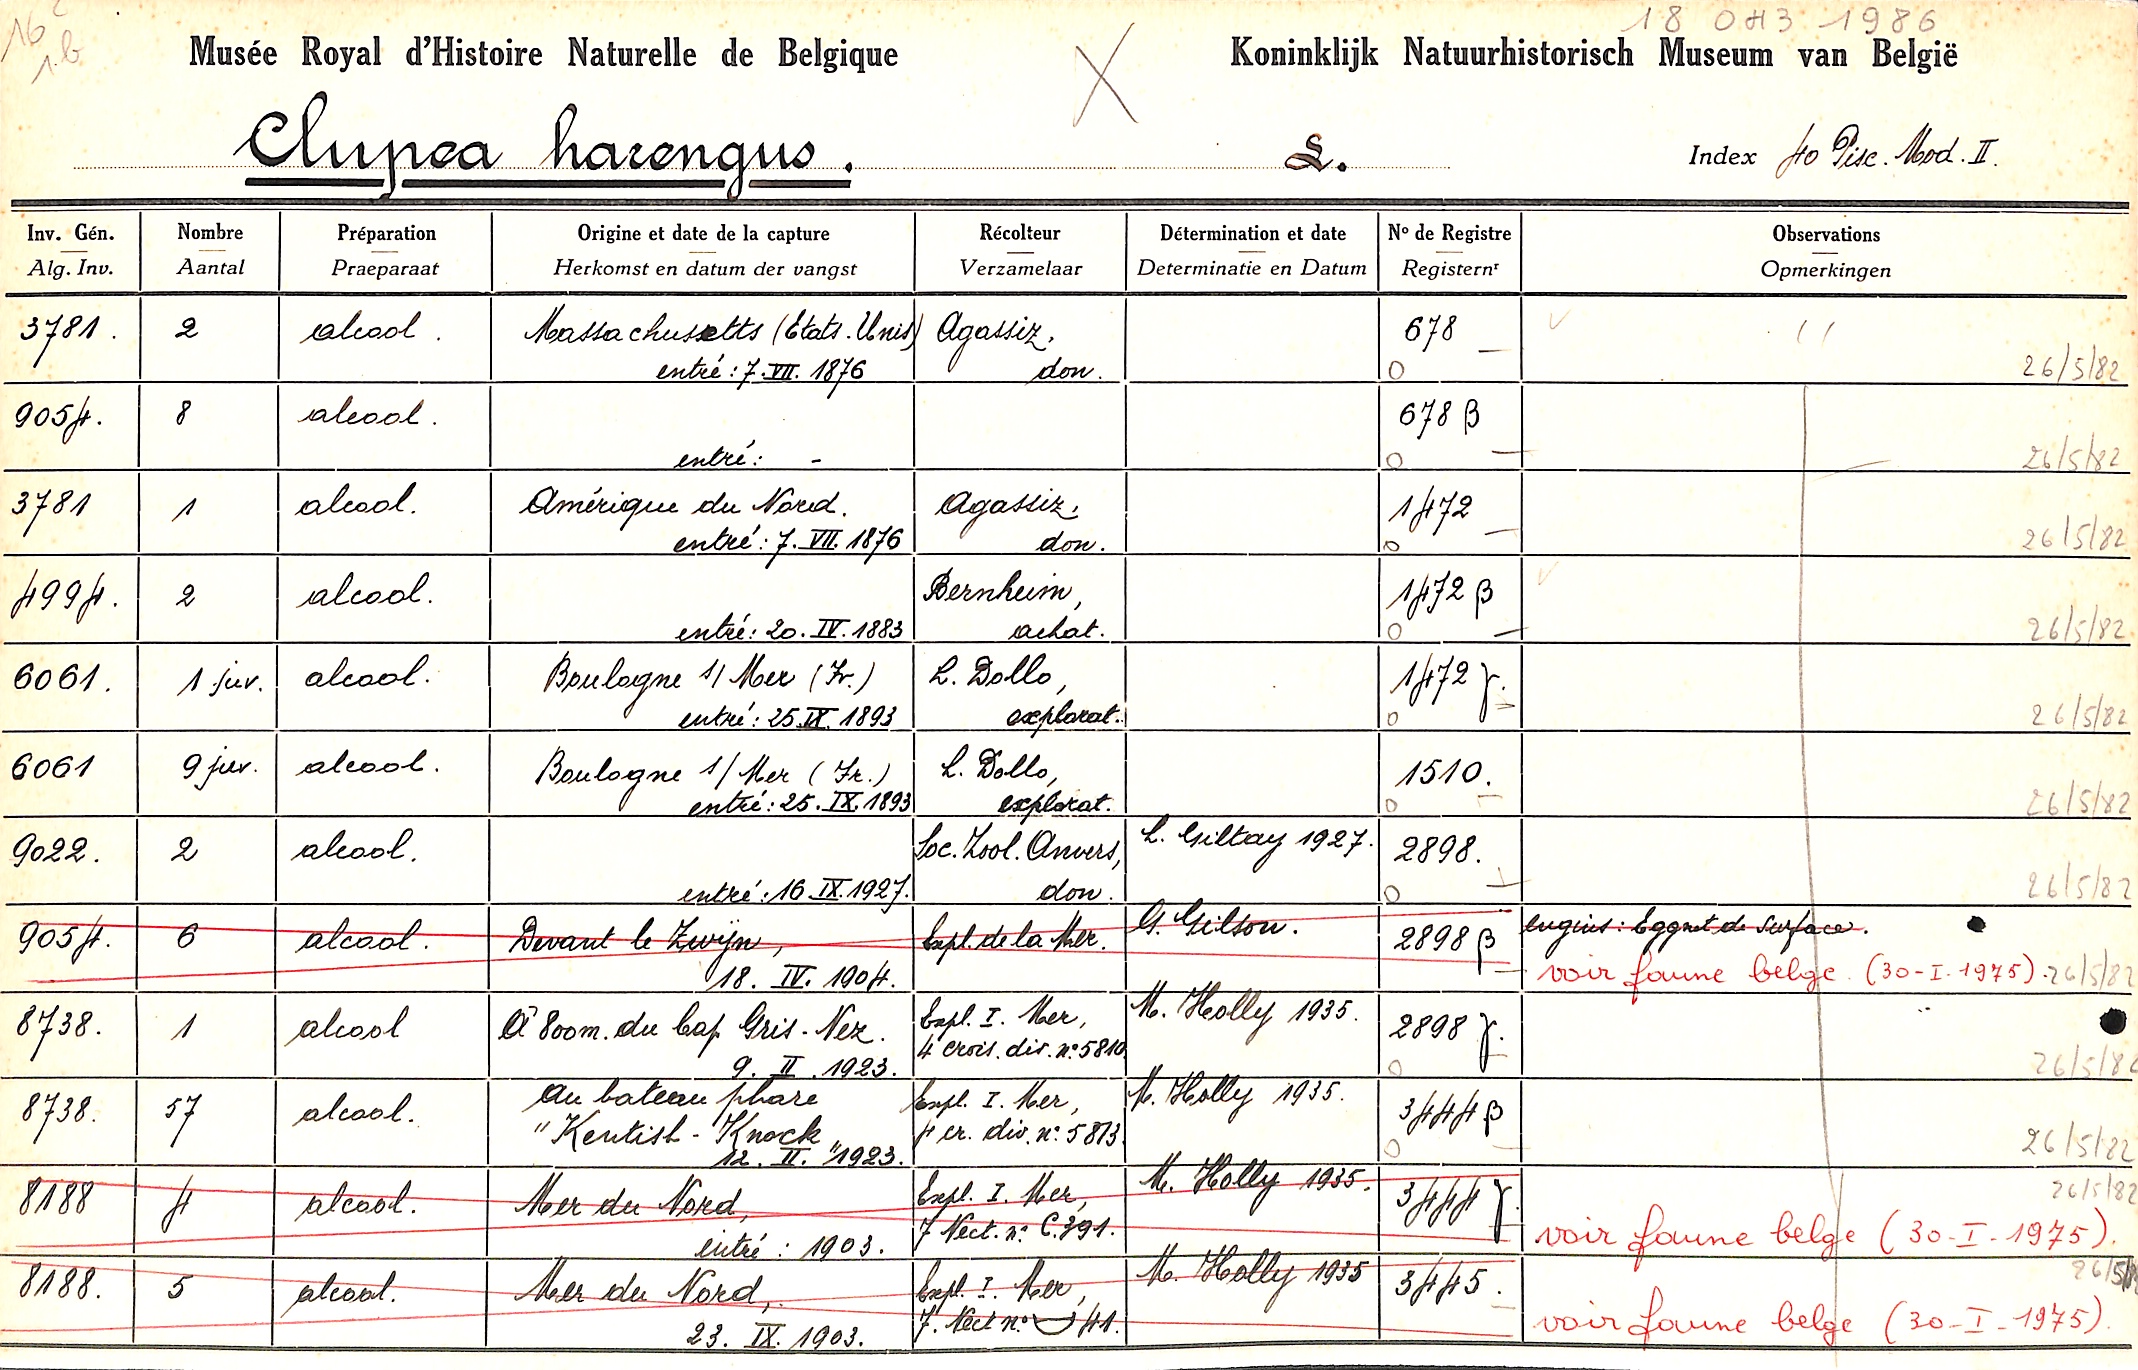 16 1.b
18 0H3 1986
Musée Royal d'Histoire Naturelle de Belgique X Koninklijk Natuurhistorisch Museum van België
Clupea harengus. L. Index 40 Pisc. Mod. II.
Inv. Gén. Nombre Préparation Origine et date de la capture Récolteur Détermination et date No de Registre Observations
Alg. Inv. Aantal Praeparaat Herkomst en datum der vangst Verzamelaar Determinatie en Datum Registernr Opmerkingen
3781. 2 alcool. Massachusetts (Etats-Unis) Agassiz, 678
entré: 7.VII.1876 don. 0 26/5/82
9054. 8 alcool. 678 β
entré: - 0 26/5/82
3781 1 alcool. Amérique du Nord. Agassiz, 1472
entré: 7.VII.1876 don. 0 26/5/82
4994. 2 alcool. Bernheim, 1472 β
entré: 20.IV.1883 achat. 0 26/5/82
6061. 1 juv. alcool. Boulogne s/Mer (Fr.) L. Dollo, 1472 γ.
entré: 25.IX.1893 explorat. 0 26/5/82
6061 9 juv. alcool. Boulogne s/Mer (Fr.) L. Dollo, 1510.
entré: 25.IX.1893 explorat. 0 26/5/82
9022. 2 alcool. Soc. Zool. Anvers, L. Giltay 1927. 2898.
entré: 16.IX.1927. don. 0 26/5/82
9054. 6 alcool. Devant le Zwijn, Expl. de la Mer. G. Gilson. 2898 β engins: Eggnet de surface.
18.IV.1904. voir faune belge (30-I-1975). 26/5/82
8738. 1 alcool À 800m. du Cap Gris-Nez. Expl. I. Mer, M. Holly 1935. 2898 γ.
9.II.1923. 4 crois. div. no 5810 0 26/5/82
8738. 57 alcool. au bateau phare Expl. I. Mer, M. Holly 1935. 3444 β
"Kentish-Knock" 4 cr. div. no 5813.
12.II.1923. 0 26/5/82
8188 4 alcool. Mer du Nord, Expl. I. Mer, M. Holly 1935. 3444 γ. 26/5/82
entré: 1903. 7 Nect. no C.391. voir faune belge (30-I-1975).
8188. 5 alcool. Mer du Nord, Expl. I. Mer, M. Holly 1935 3445. 26/5/
23.IX.1903. 7. Nect no 341. voir faune belge (30-I-1975).